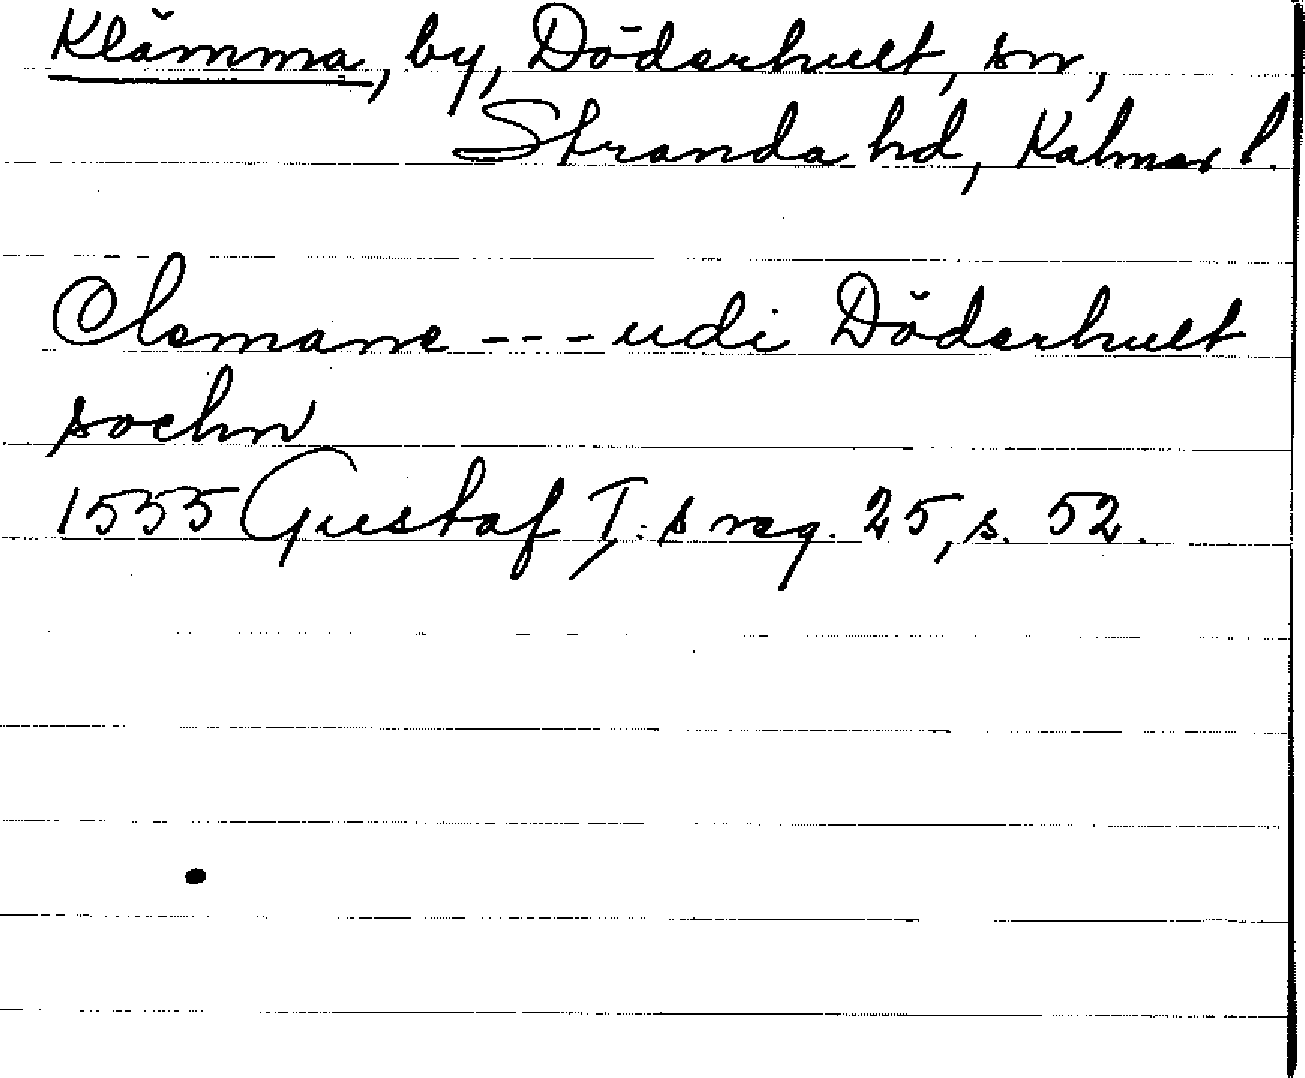 Klämma, by, Döderhult, sn,
Stranda hd, Kalmar l.
Clemane --- udi Döderhult
sochn
1555 Gustaf I:s reg. 25, s. 52.